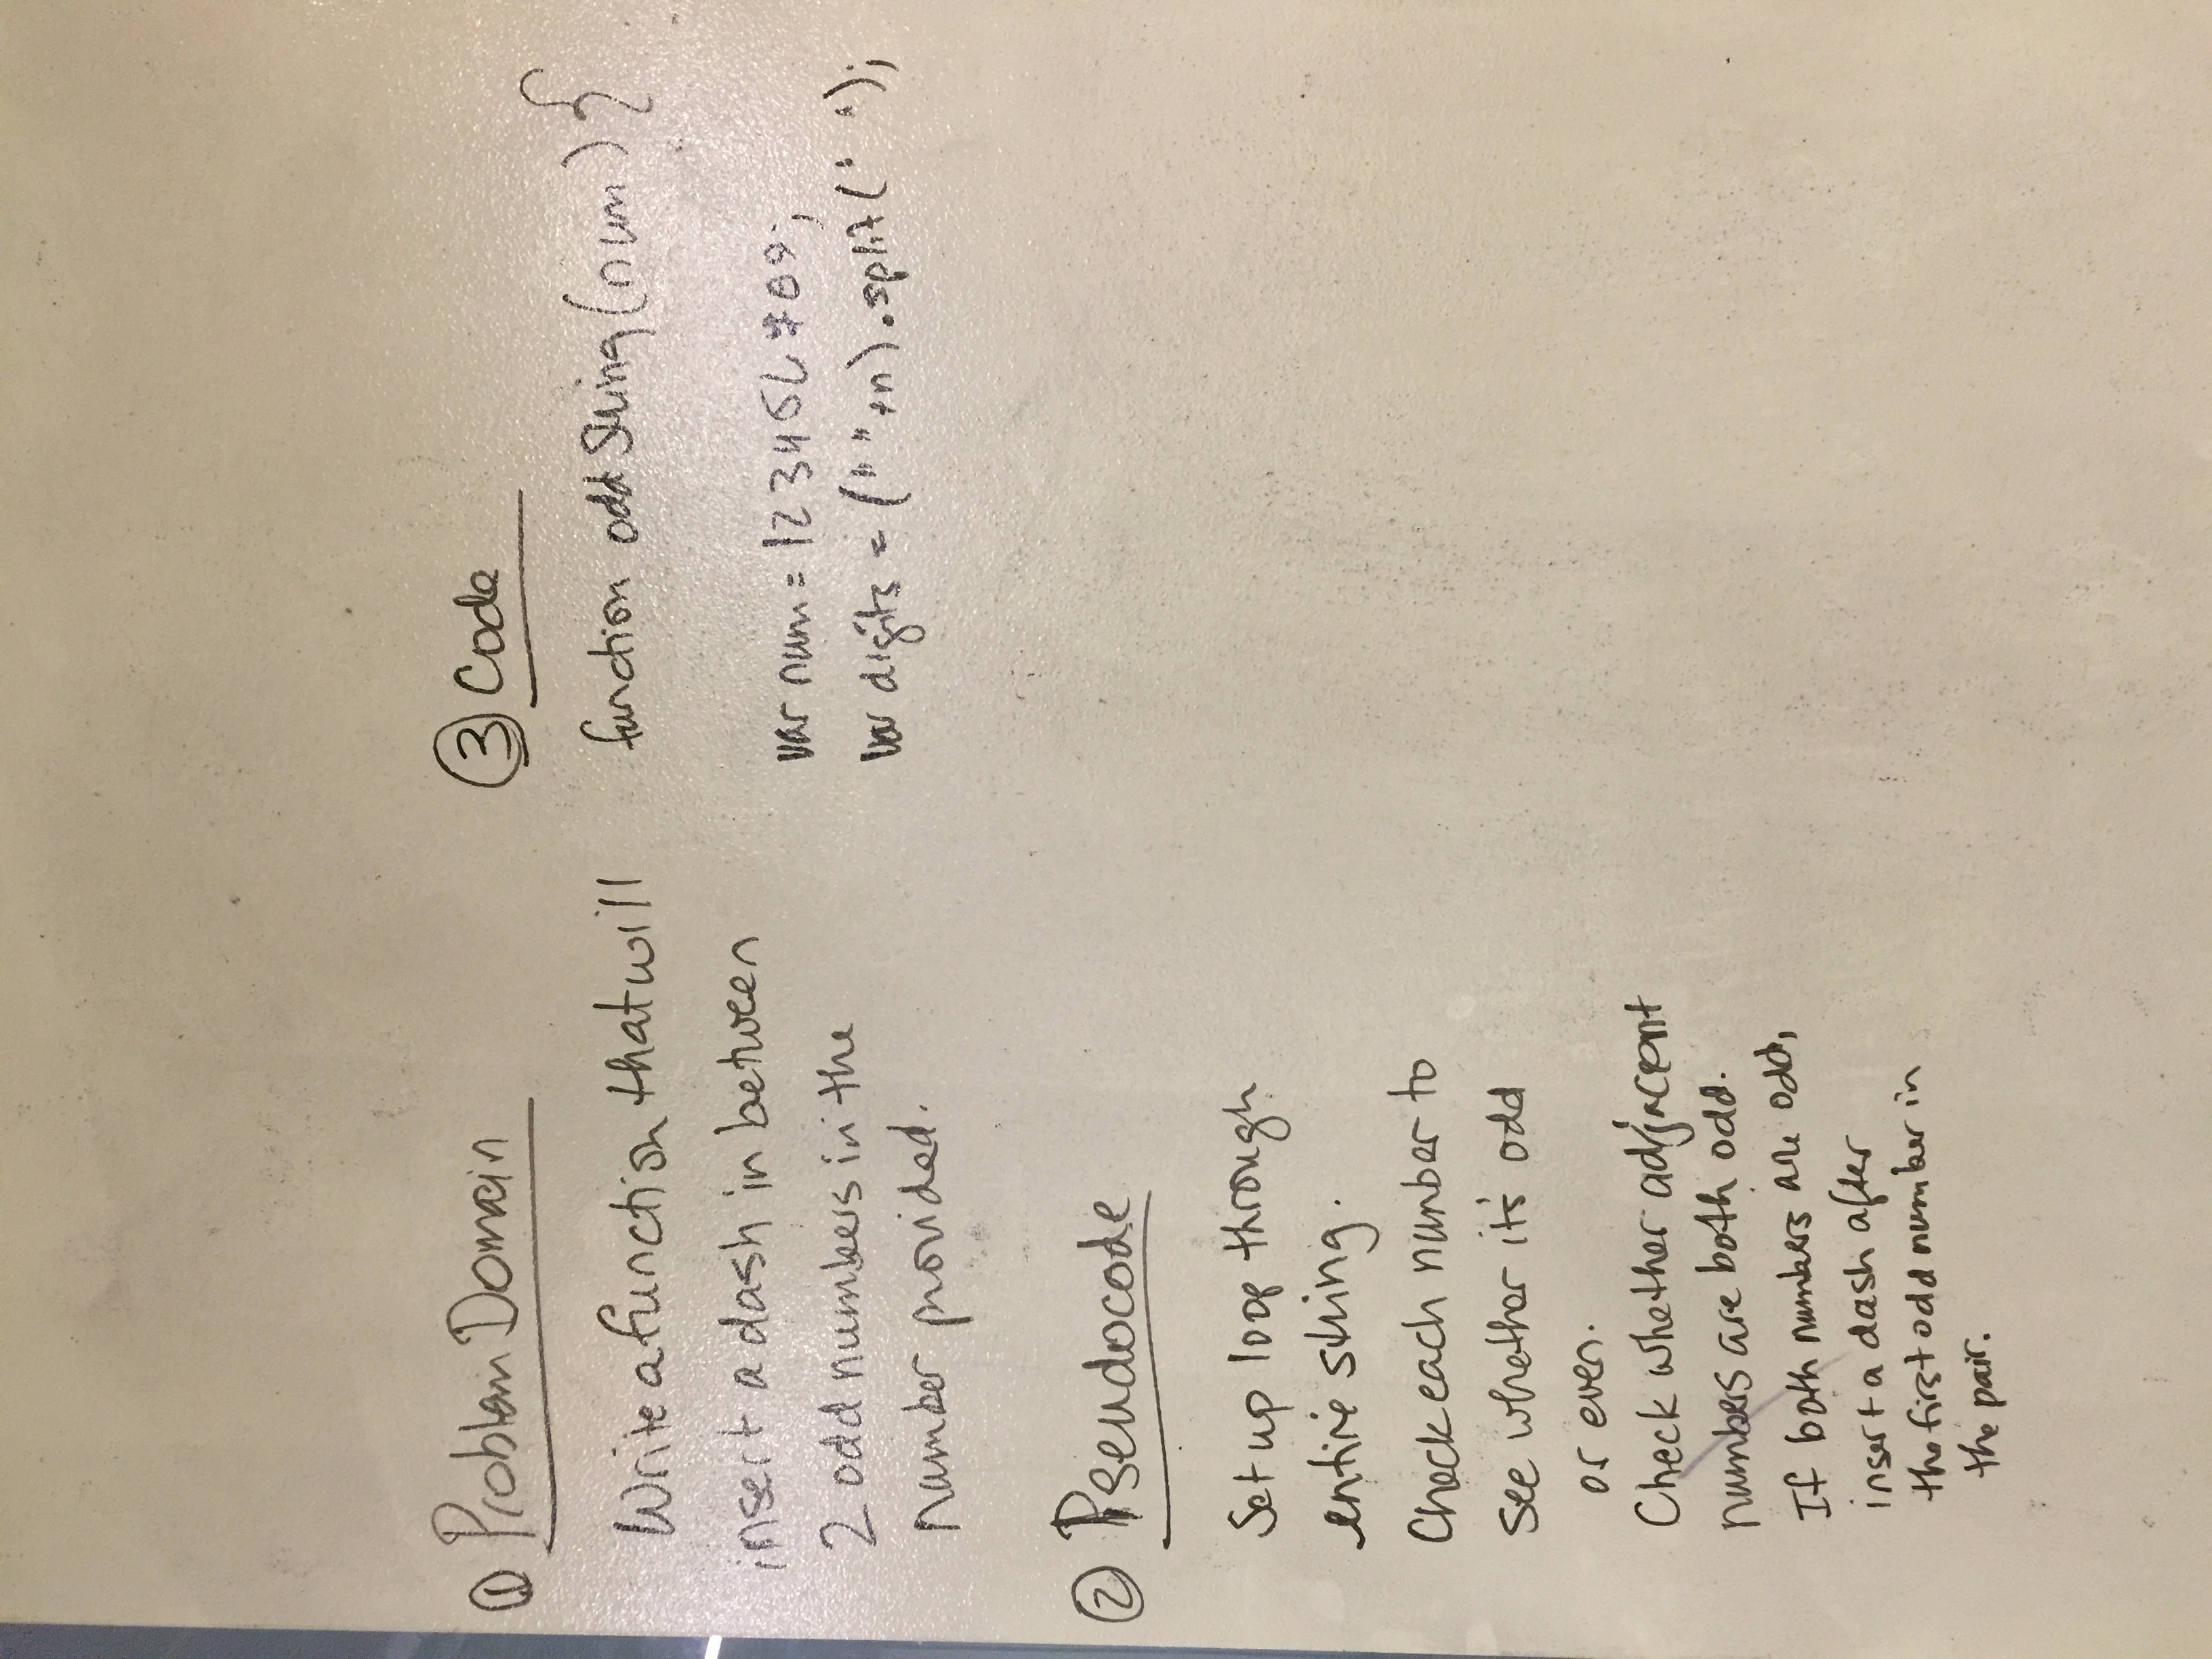 ① Problem Domain
Write a function that will
insert a dash in between
2 odd numbers in the
number provided.
② Pseudocode
Set up loop through
entire string.
Check each number to
see whether it's odd
or even.
Check whether adjacent
numbers are both odd.
If both numbers are odd,
insert a dash after
the first odd number in
the pair.
③ Code
function oddString(num) {
var num = 123456789;
var digits = (" "+n).split(' ');